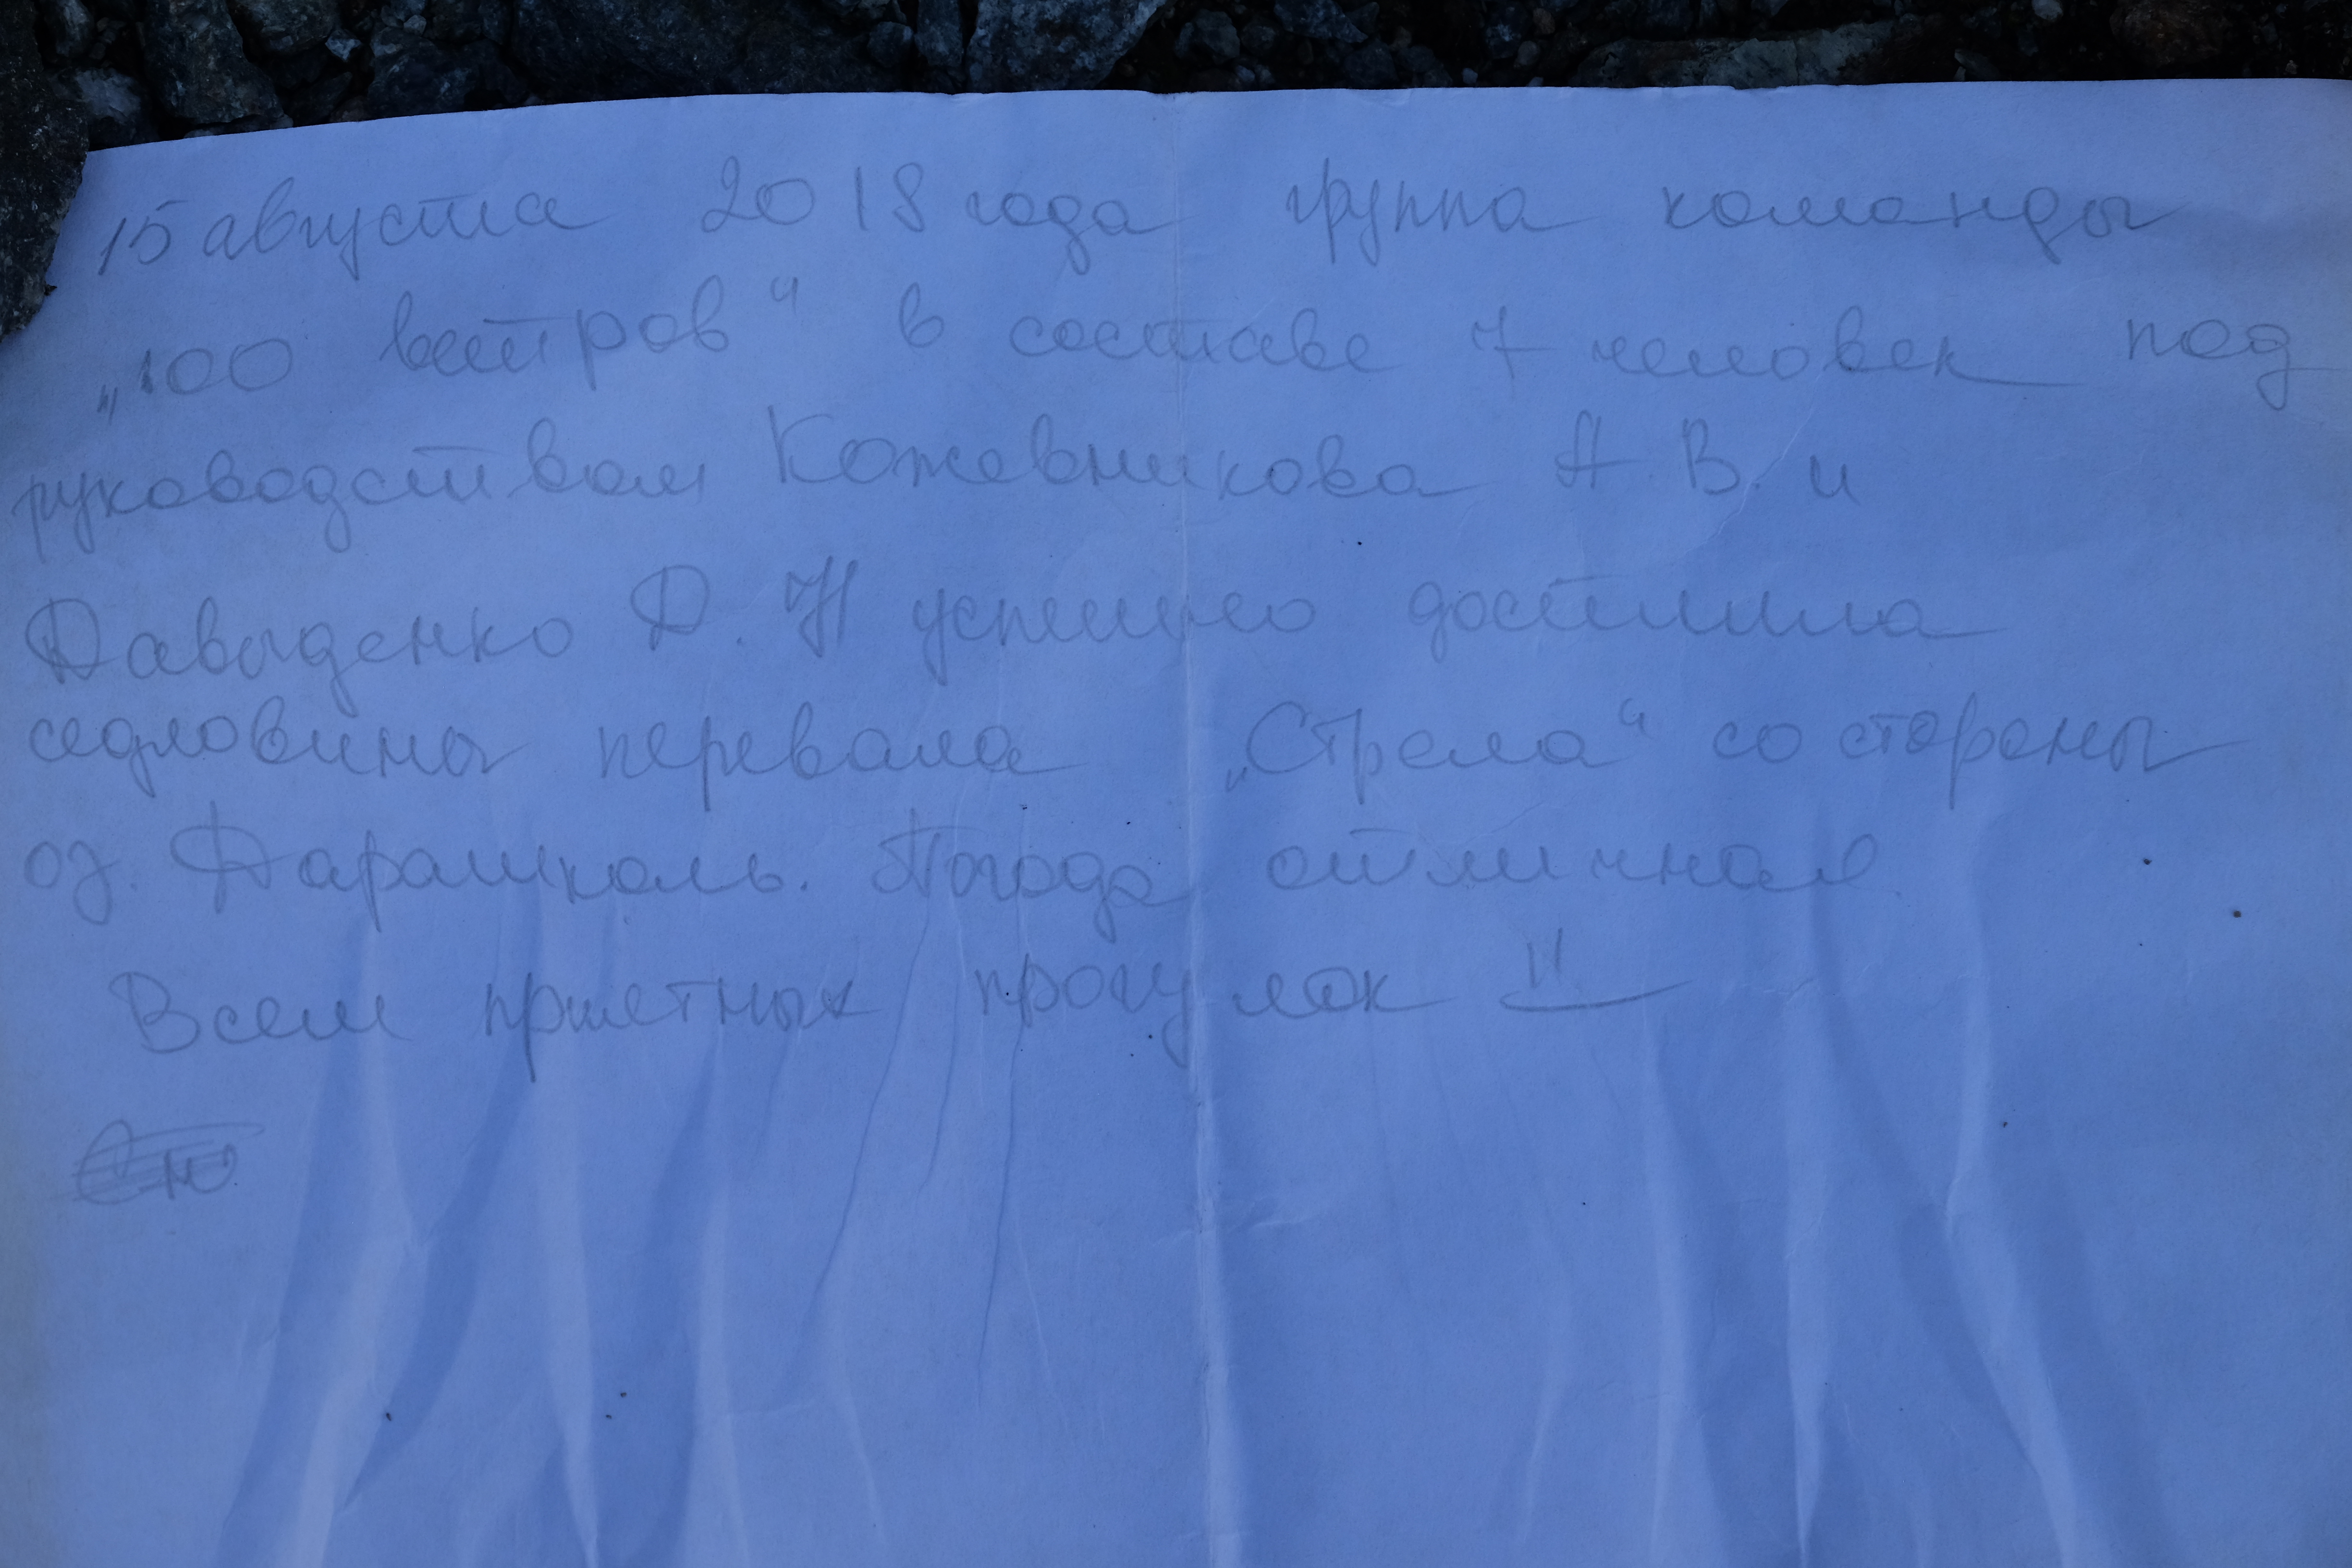 15 августа 2018 года группа команды
„100 ветров“ в составе 7 человек под
руководством Кожевникова А. В. и
Давыденко Д. Н успешно достигла
седловины перевала „Стрела“ со стороны
оз. Дарашколь. Погода отличная.
Всем приятных прогулок